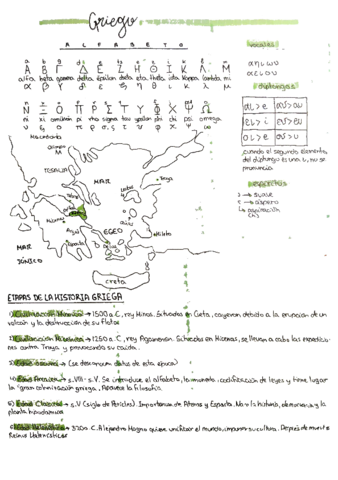 Griego
ALFABETO
Α Β Γ Δ Ε Ζ Η Θ Ι Κ Λ Μ
alfa beta gamma delta épsilon dseta eta theta iota kappa lambda mi
α β γ δ ε ζ η θ ι κ λ μ
Ν Ξ Ο Π Ρ Σ Τ Υ Φ Χ Ψ Ω
ni xi ómicron pi rho sigma tau ypsilon phi chi psi omega
ν ξ ο π ρ σ, ς τ υ φ χ ψ ω
vocales
α η ι ω υ
α ε ι ο υ
diptongos
Cuando el segundo elemento
del diptongo es una ι, no se
pronuncia
espíritus
suave
áspero
aspiración
Macedonia
TESALIA
MAR
Troya
EGEO
Mileto
MAR
JÓNICO
Creta
ETAPAS DE LA HISTORIA GRIEGA
1) Civilización Minoica → 1500 a.C, rey Minos. Situados en Creta, cayeron debido a la erupción de un
volcán y la destrucción de su flota
2) Civilización Micénica → 1250 a.C, rey Agamenón. Situados en Micenas, se llevan a cabo las expedicio-
nes contra Troya y provocando su caída.
3) Edad oscura → (se desconocen datos de esta época)
4) Edad Arcaica → s.VIII - s.V. Se introduce el alfabeto, la moneda, codificación de leyes y tiene lugar
la gran colonización griega. Aparece la filosofía.
5) Edad Clásica → s.V (siglo de Pericles). Importancia de Atenas y Esparta. Nace la historia, democracia y la
planta hipodámica
Alejandro Magno quiere unificar el mundo, imponer su cultura. Después de muerte
Reinos Helenísticos